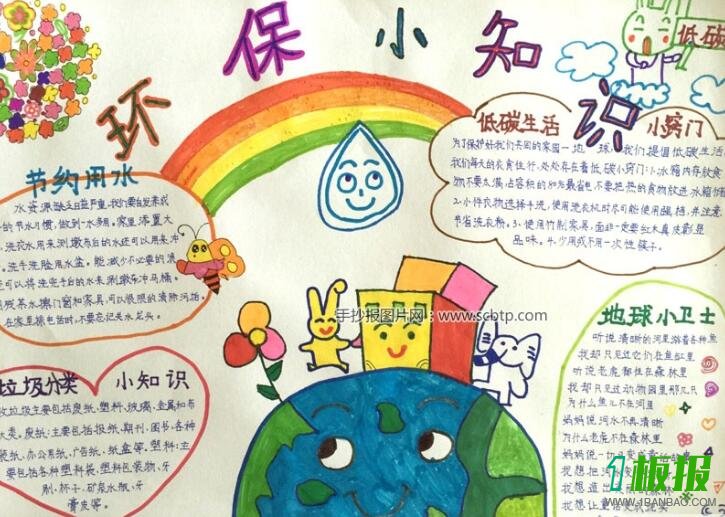 环保小知识
低碳
节约用水
水资源缺乏日益严重,我们要自发养成
的节水习惯,做到一水多用。家里添置大
洗衣水用来涮墩布后的水还可以用来冲
。洗手洗脸用水盆。能,减少不必要的浪
还可以将洗完手台的水来涮墩布冲马桶。
用残茶水擦门窗和家具可以很顺的清除污垢。
在家里接电话时,不要忘记关水龙头。
低碳生活 小窍门
为了保护好我们共同的家园一地球,我们提倡低碳生活
我们每天的衣食住行,处处存在着低碳小窍门:1.冰箱内存放食
物不要太满,占容积的80%最省电,不要把热的食物放进冰箱
2.小件衣物选择手洗,使用洗衣机时尽可能使用
节省洗衣粉。3、使用竹制家具,面非一定要红木真皮彰显
品味。4、少用或不用一次性筷子。
手抄报图片网:www.scbtp.com
垃圾分类 小知识
收垃圾主要包括废纸、塑料、玻璃、金属和布
大类。废纸:主要包括报纸、期刊、图书、各种
装纸、办公用纸、广告纸、纸盒等。塑料:主
要包括各种塑料袋、塑料包装物、牙
刷、杯子、矿泉水瓶、牙
膏皮等。
地球小卫士
听说清晰的河里游着各种鱼
我却只见过它们在鱼缸里
听说老虎都住在森林里
我却只见过动物园里那几只
为什么鱼儿不在河里
妈妈说河水不再清晰
为什么老虎不在森林里
妈妈说一切
我想把污水变
我想造出
我想让
1板报
WWW.1BANBAO.COM